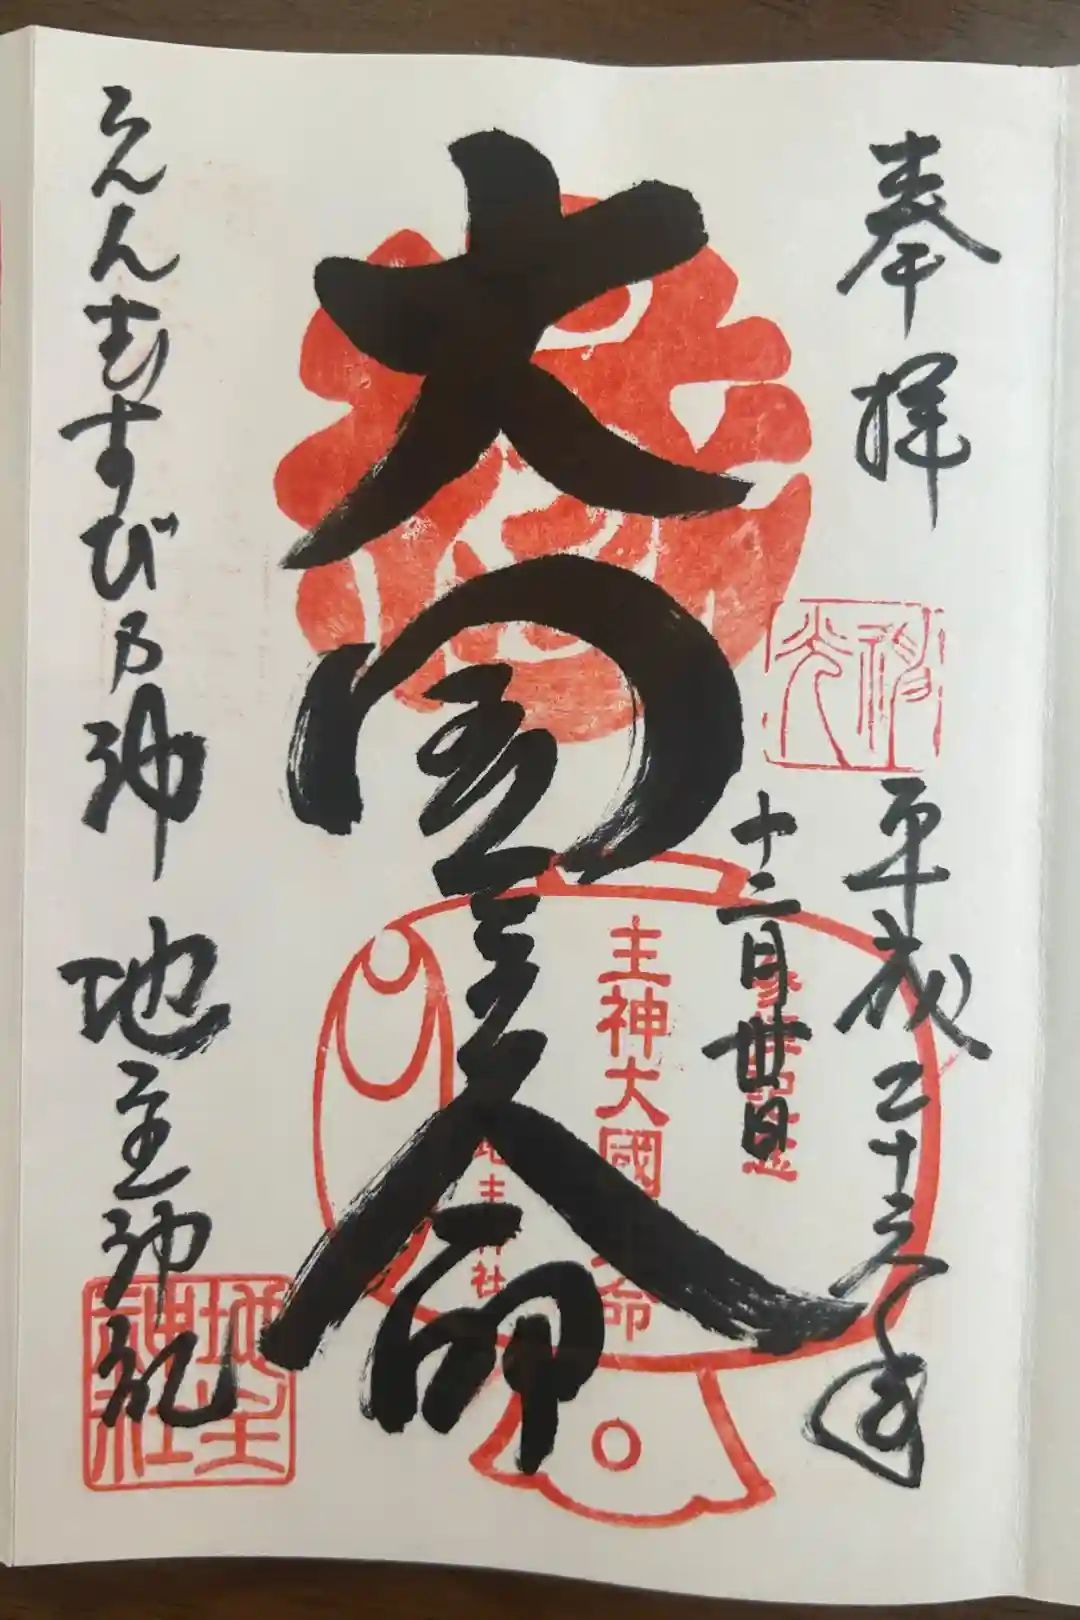 奉拝
平成二十三年
十二月卅日
大国主命
主神大國主命
地主神社
えんむすび乃神 地主神社
地主神社